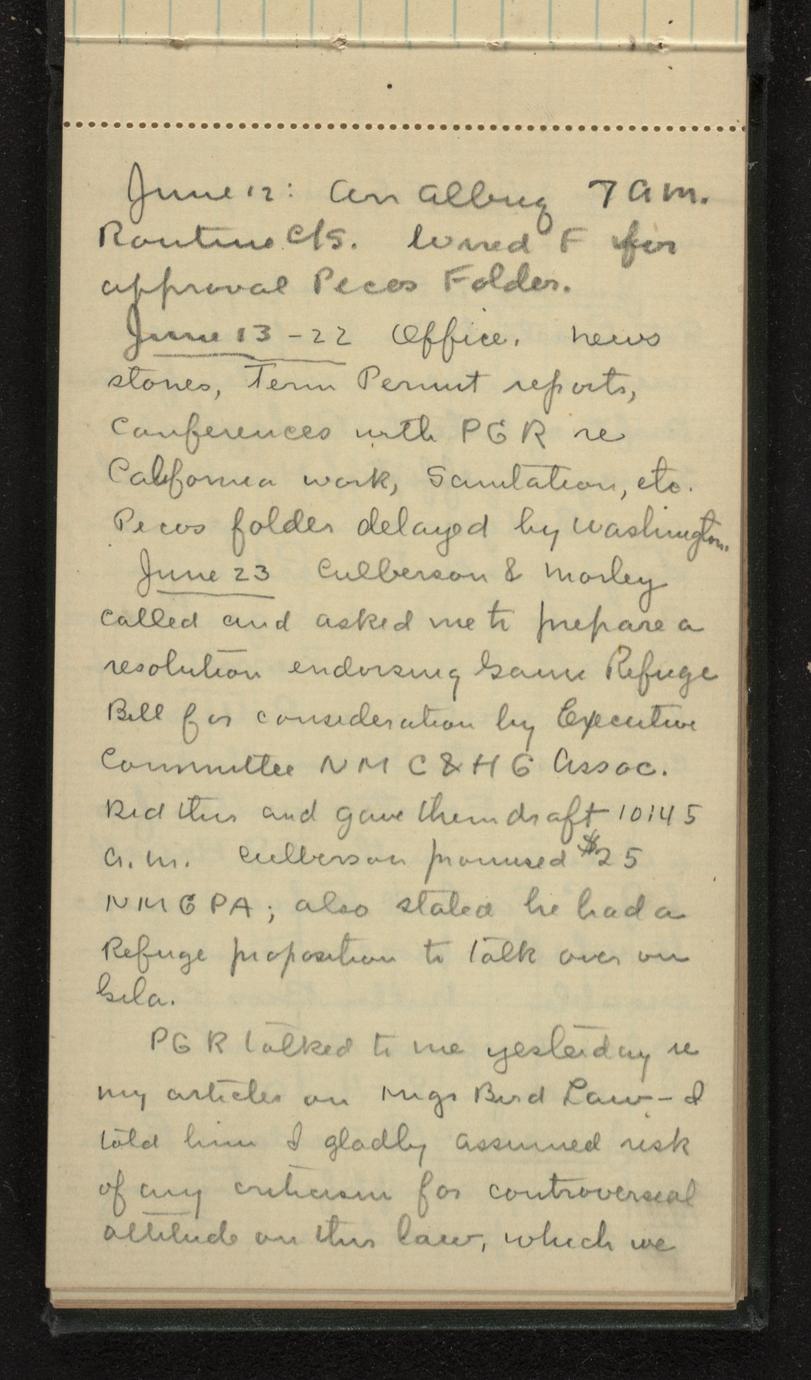 June 12: Arr Albuq 7 a.m.
Routine Cfs. Wired F for
approval Pecos Folder.
June 13-22 Office. News
stories, Term Permit reports,
conferences with PGR re
California work, Sanitation, etc.
Pecos folder delayed by Washington.
June 23 Culberson & Morley
called and asked me to prepare a
resolution endorsing Game Refuge
Bill for consideration by Executive
Committee NM C&HG Assoc.
Did this and gave them draft 10:45
a.m. Culberson promised $25
NMGPA; also stated he had a
Refuge proposition to talk over on
Gila.
PGR talked to me yesterday re
my articles on Migr Bird Law - I
told him I gladly assumed risk
of any criticism for controversial
attitude on this law, which we